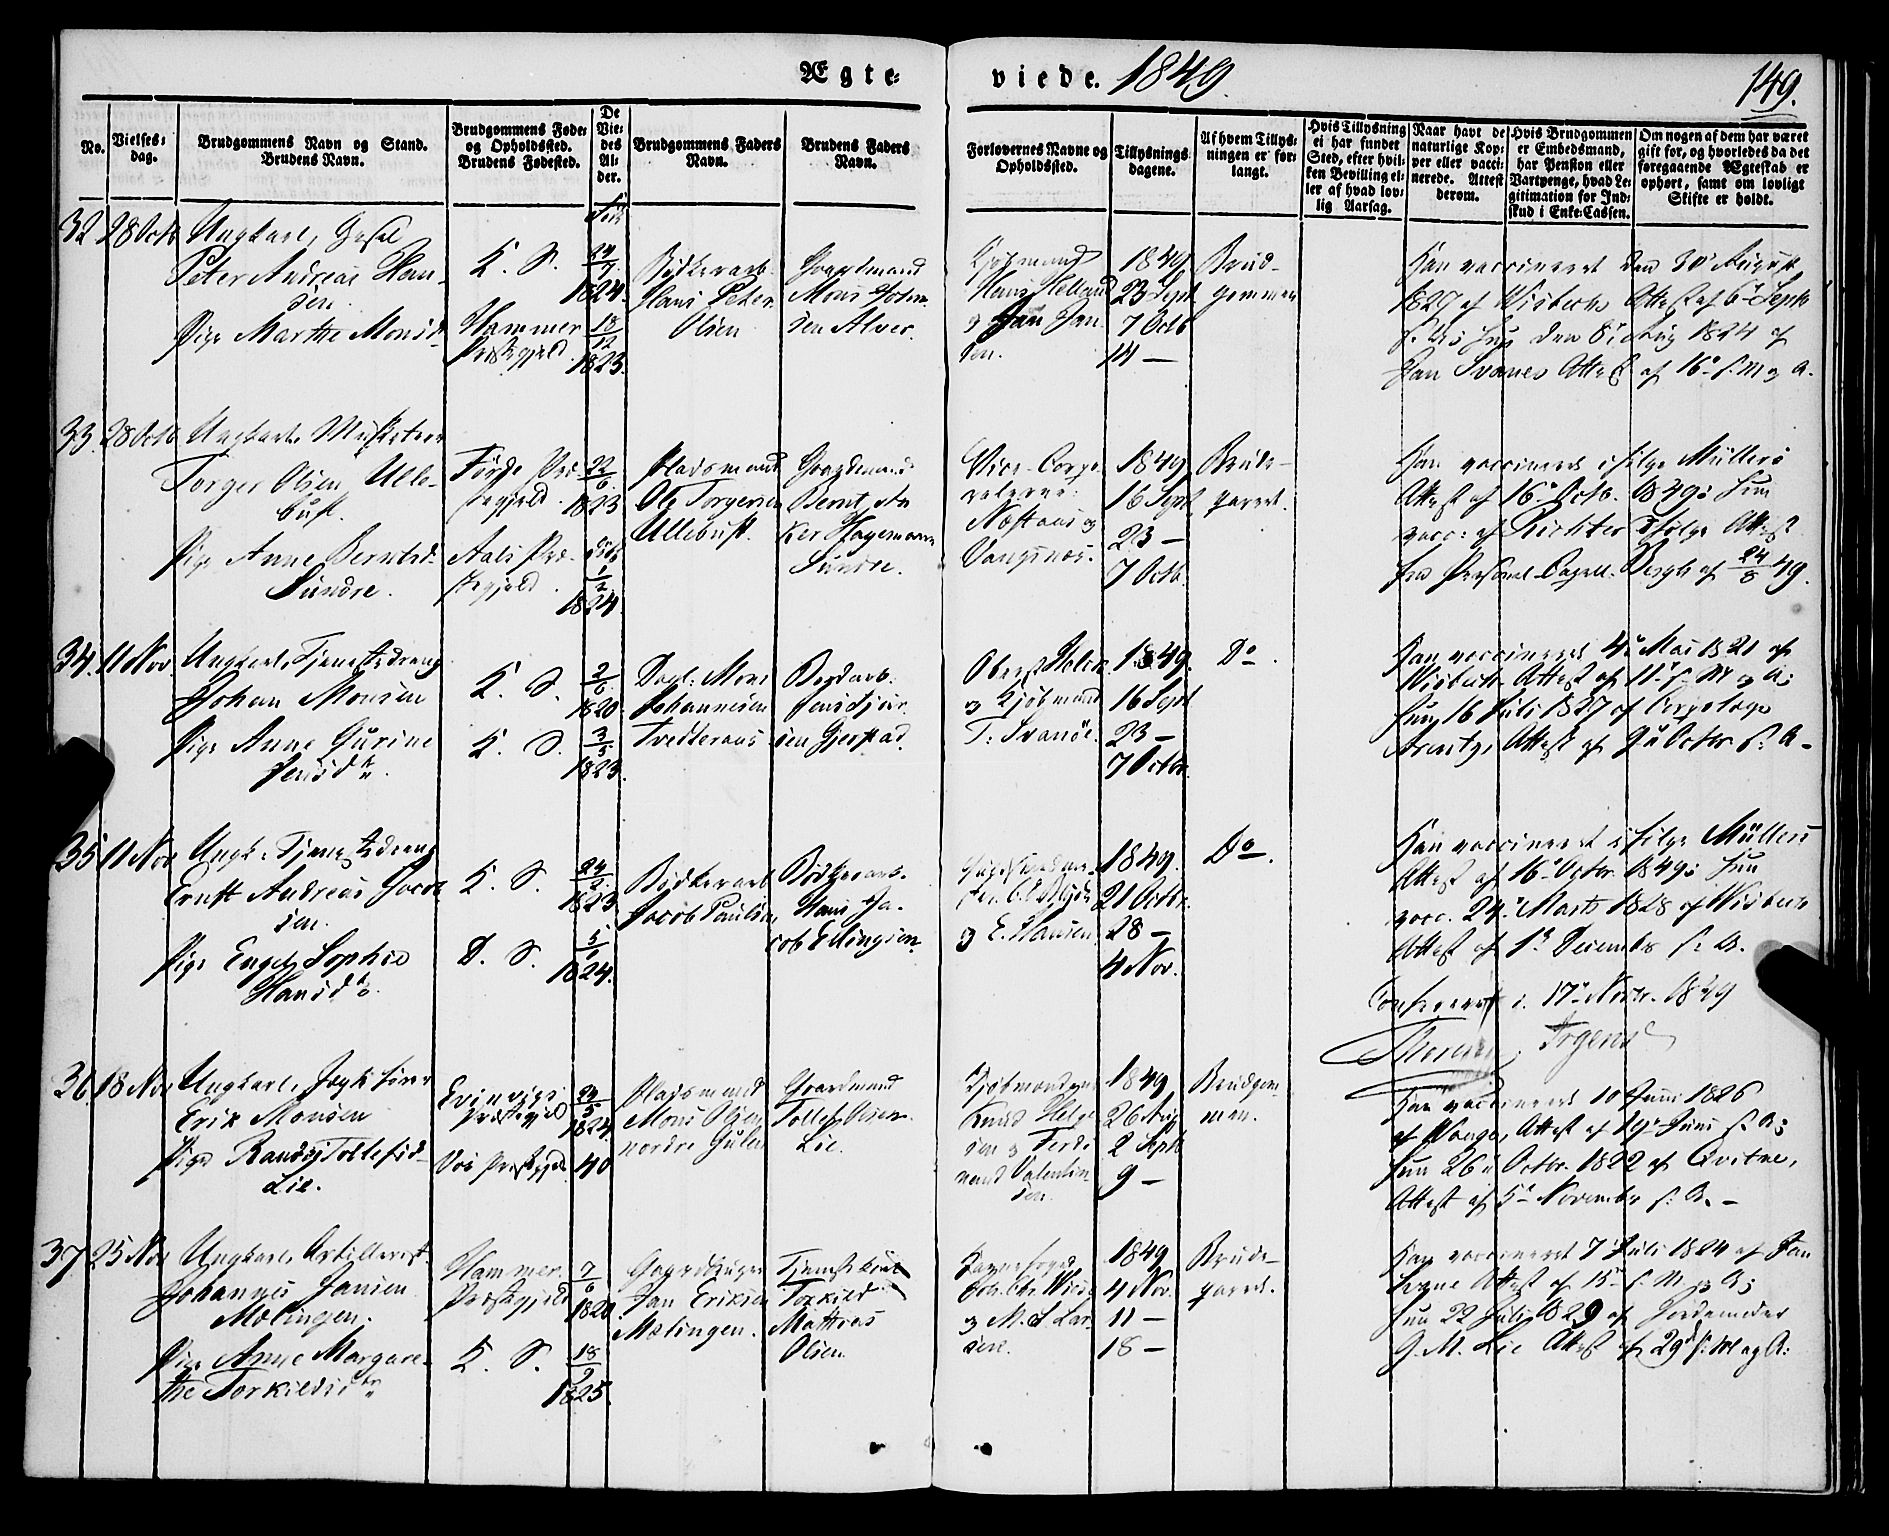 Ægte-
viede. 1849.
149.
No.
Vielses-
dag.
Brudgommens Navn og Stand.
Brudens Navn.
Brudgommens Føde-
og Opholdssted.
Brudens Fødested.
De
Vie-
des
Al-
der.
Brudgommens Faders
Navn.
Brudens Faders
Navn.
Forlovernes Navne og
Opholdssted.
Tillysnings-
dagene.
Af hvem Tillys-
ningen er for-
langt.
Hvis Tillysning
ei har fundet
Sted, efter hvil-
ken Bevilling el-
ler af hvad lov-
lig Aarsag.
Naar havt de
naturlige Kop-
per eller vacci-
nerede. Attest
derom.
Hvis Brudgommen
er Embedsmand,
har Pension eller
Vartpenge, hvad Le-
gitimation for Ind-
skud i Enke-Cassen.
Om nogen af dem har været
gift før, og hvorledes da det
foregaaende Ægteskab er
ophørt, samt om lovligt
Skifte er holdt.
32 28 Octb
Ungkarl,
Peter Andreas Han-
sen.
Pige Marthe Monsd
K. S.
Hammer
Præstegjeld
24/7
1824.
18/12
1823.
Bødkerarb.
Hans Peter
Olsen
Gaardmand
Mons
sen Alver.
Kjøbmand
Hans Helland
og Jan Jan
sen.
1849
23 Sept
7 Octb
14 —
Brud-
gommen
Han vaccineret den 30 August
1827 af Wisbechs Attest af 6 Septb
s. A; Hun den 8 Aug 1824 af
Jan Svanes Attest af 16 s. M og A.
33. 28 Octb
Ungkarl,
Torger Olsen Ulle-
bust.
Pige Anne Berntsd
Sundre.
Førde Præ-
stegjeld.
Aals Præ-
stegjeld.
22/6
1823
1/2
1824.
Pladsmand
Ole Torgersen
Ullebust.
Gaardmand
Bernt An
ker Hagemann
Sundre.
Vice-Corpo
ralerne:
Næstaas og
Vangsnæs.
1849
16 Sept
23 —
7 Octb.
Brude-
parret.
Han vaccineret ifølge Müllers
Attest af 16 Octb. 1849; Hun
vacc: af Richter ifølge Attest
fra Personel-Capell. Bergh af 24/8 49.
34. 11 Nov.
Ungkarl, Tjenestedreng
Johan Monsen
Pige Anne Gurine
Jensdtr.
K. S.
K. S.
2/6
1820.
3/5
1823.
Dagl: Mons
Johannesen
Tvedteraas
Bødarb.
sen Gjerstad.
Oberst Holck
og Kjøbmand
T: Svanøe.
1849.
16 Sept
23 —
7 Octbr.
Do.
Han vaccineret 4 Mai 1821 af
Wisbechs Attest af 11 s. M og A;
Hun 16 Juli 1827 af
Arentz, Attest af Octbr. s: A -
35 11 Nov
Ungk: Tjenestedreng
Ernst Andreas Jacob
sen.
Pige Engel Sophie
Hansdtr.
K. S.
D. S.
24/2
1823
5/1
1824.
Bødkerarb
Jacob Paulsen
Bødkerarb.
Hans Ja-
cob Ellingsen
og E. Hansen
1849.
21 Octbr.
28 —
4 Nov.
Do.
Han vaccineret ifølge Müllers
Attest af 16 Octbr. 1849; Hun
vacc. 24 Marts 1828 af Wisbech
Attest af 1 December s: A.
Confereret d. 17 Novbr. 1849
36. 18 Nov
Ungkarl,
Erik Monsen
Pige Randi Tollefsd-
Lie.
Evindvigs
Præstegjeld
Vos Præstegjeld
24/5
1824.
40
Pladsmand
Mons Olsen
nordre Gulen
Gaardmand
Tollef
Lie.
Kjøbmændene
Knud Helge
sen og Ferdi
nand Valentin
sen.
1849
26 Aug
2 Septb
9 —
Brudgom-
men.
Han vaccineret 10 Juni 1826
af Wange, Attest af 19 Juni s: A;
Hun 26 Octbr. 1822 af Qvitne,
Attest af 5 November s: A. -
37. 25 Nov
Ungkarl, Artillerist
Johannes Jansen
Mælingen.
Pige Anne Margare-
the Torkildsdtr
Hammer
Præstegjeld
K. S.
7/6
1820.
18/9
1825.
Gaardbruger
Jan Eriksen
Mælingen.
Tjenestekarl
Torkild
Matthias
Olsen
og M. L. Lar-
sen.
1849
4 Nov.
11 —
18 —
Brude-
parret.
Han vaccineret 7 Juli 1824 af Jan
Attest af 15 s. M og A;
Hun 22 Juli 1829 af Jordemoder
G. M. Lie Attest af 29 s: M og A: